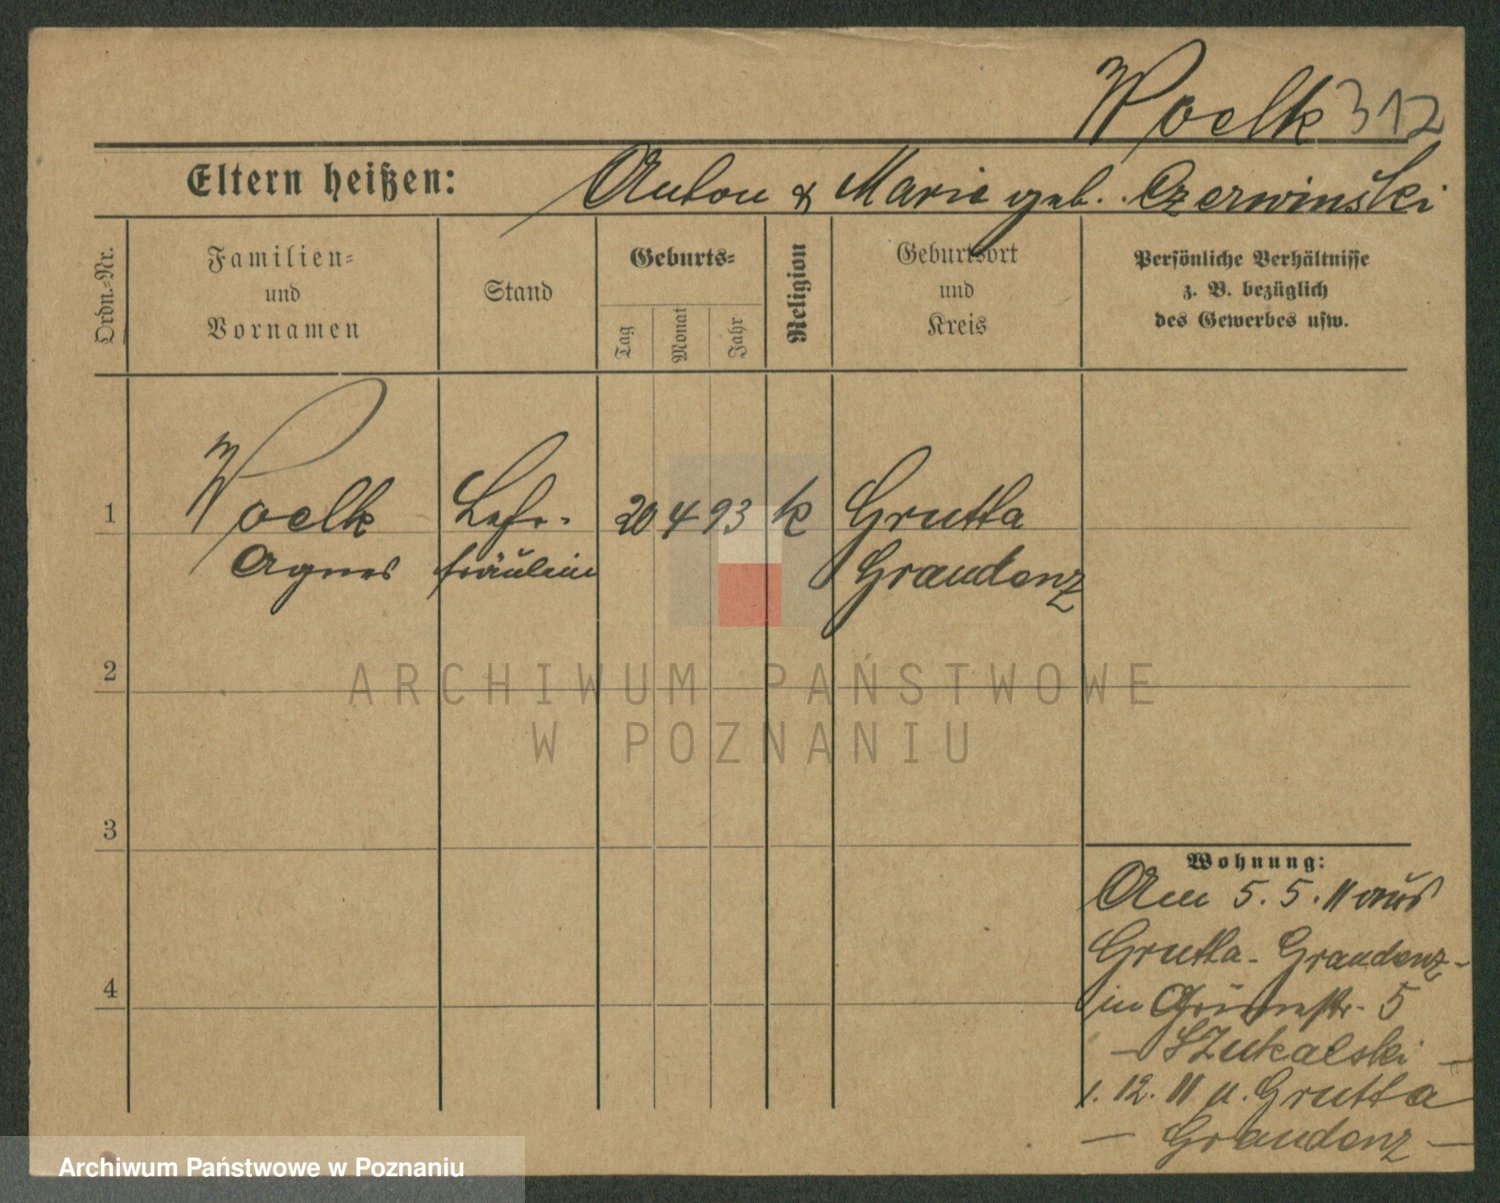 Woelk 312
Eltern heißen: Anton & Marie geb. Czerwinski
Ordn.-Nr.
Familien-
und
Vornamen
Stand
Geburts-
Tag
Monat
Jahr
Religion
Geburtsort
und
Kreis
Persönliche Verhältnisse
z. B. bezüglich
des Gewerbes usw.
1 Woelk Lehr- 20 4 93 k Grutta
Agnes fräulein Graudenz
2
ARCHIWUM PAŃSTWOWE
W POZNANIU
3
Wohnung:
Am 5. 5. 11 aus
Grutta - Graudenz -
4
in Grünestr. 5
- Szukalski -
1. 12. 11 n. Grutta
- Graudenz -
Archiwum Państwowe w Poznaniu